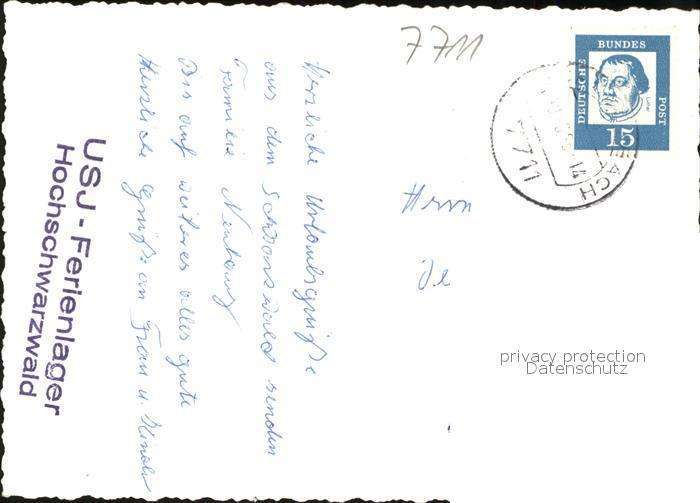 7711
DEUTSCHE
BUNDES
POST
15
7711
ACH
Herzliche Urlaubsgrüße
aus dem Schwarzwald senden
Familie
Bis auf weiteres alles gute
Herzliche Grüße an Frau u. Kinder
Herrn
de
USJ - Ferienlager
Hochschwarzwald
privacy protection
Datenschutz